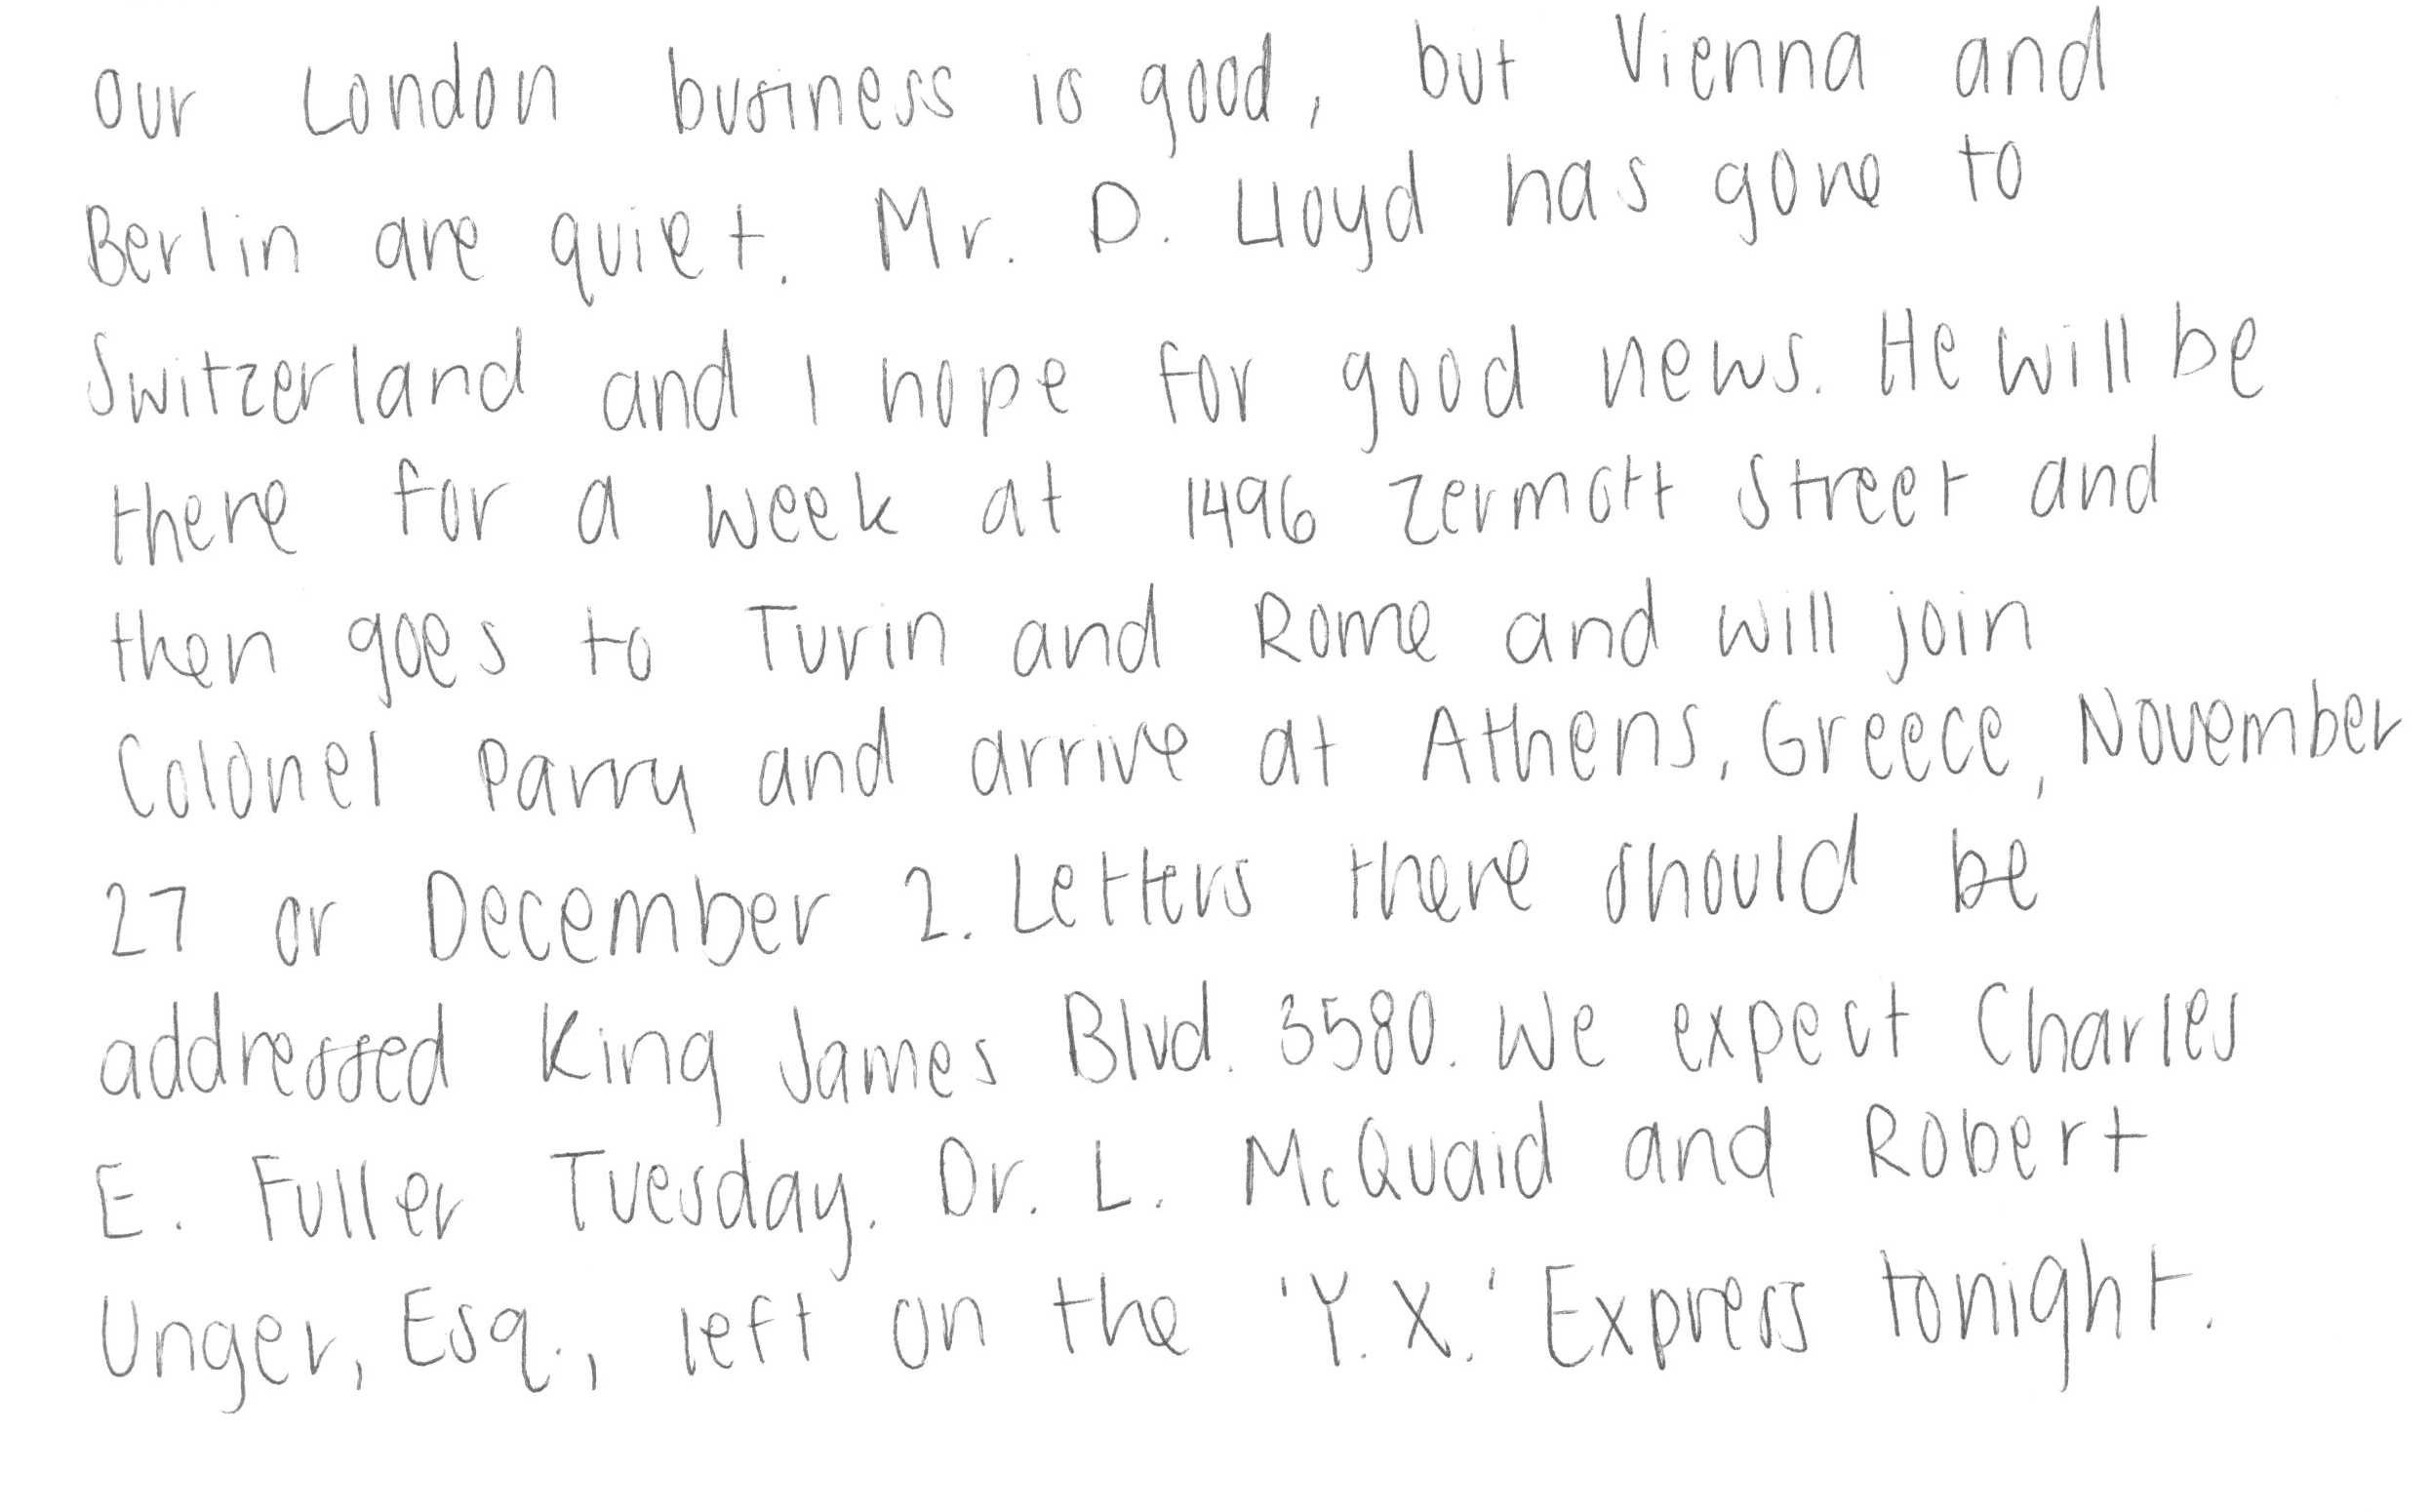 Our London business is good, but Vienna and
Berlin are quiet. Mr. D. Lloyd has gone to
Switzerland and I hope for good news. He will be
there for a week at 1496 Zermott Street and
then goes to Turin and Rome and will join
Colonel Parry and arrive at Athens, Greece, November
27 or December 2. Letters there should be
addressed King James Blvd. 3580. We expect Charles
E. Fuller Tuesday. Dr. L. McQuaid and Robert
Unger, Esq., left on the 'Y. X.' Express tonight.